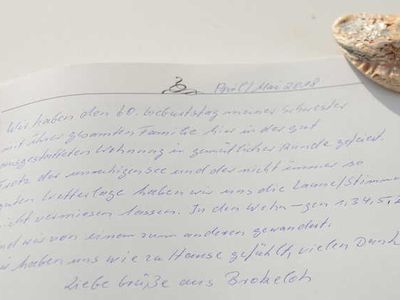 April/Mai 2018
Wir haben den 60. Geburtstag meiner Schwester
mit ihrer gesamten Familie hier in der gut
ausgestatteten Wohnung in gemütlicher Runde gefeiert.
Trotz der unruhigen See und der nicht immer so
guten Wetterlage haben wir uns die Laune/Stimmung
nicht vermiesen lassen. In den Wohn-gen 1,3,4,5,
sind wir von einem zum anderen gewandert.
Wir haben uns wie zu Hause gefühlt, vielen Dank
Liebe Grüße aus Brokeloh